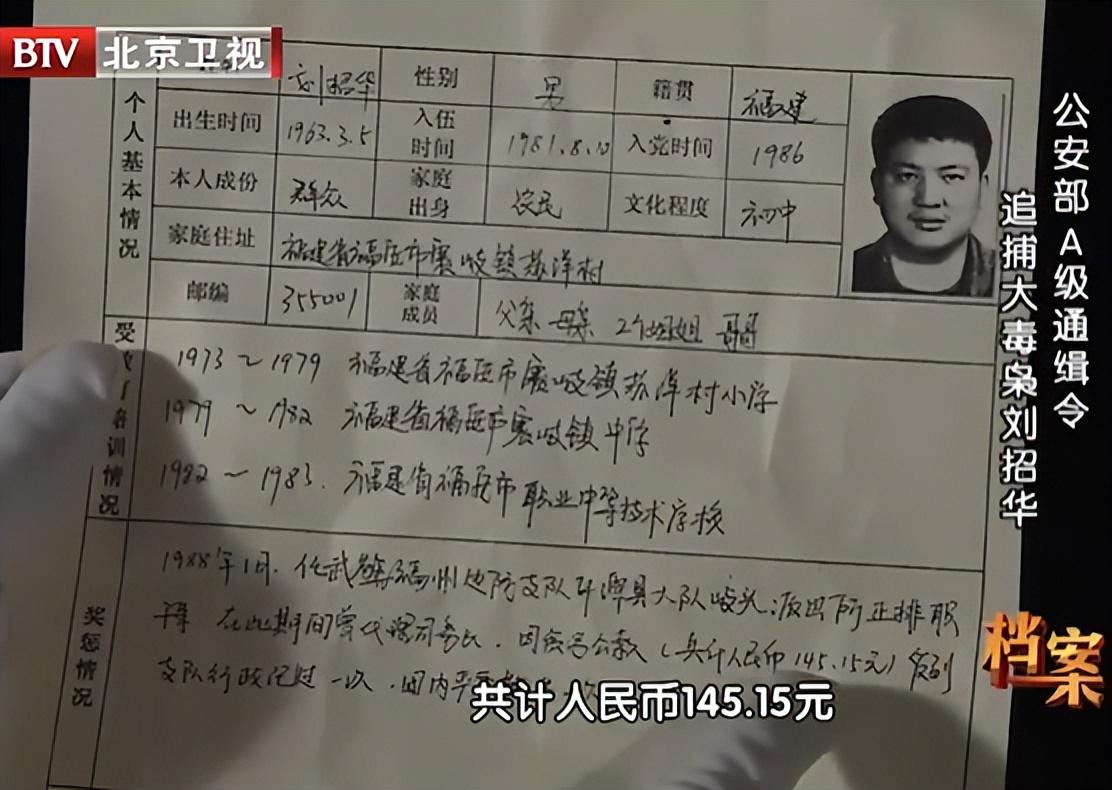 BTV 北京卫视
刘招华 性别 男 籍贯 福建
出生时间 1963.3.5 入伍时间 1981.8.10 入党时间 1986
本人成份 群众 家庭出身 农民 文化程度 初中
家庭住址 福建省福安市赛岐镇苏洋村
邮编 355001 家庭成员 父亲 母亲 2个姐姐 哥哥
个人基本情况
1973~1979 福建省福安市赛岐镇苏洋村小学
1979~1982 福建省福安市赛岐镇中学
1982~1983. 福建省福安市职业中等技术学校
受 培训情况
1988年1月. 任武警福州边防支队 大队岐头派出所正排职
在此期间曾代理司务长. 因 公款(共计人民币145.15元)受到
支队行政记过一次.
奖惩情况
公安部A级通缉令
追捕大毒枭刘招华
档案
共计人民币145.15元